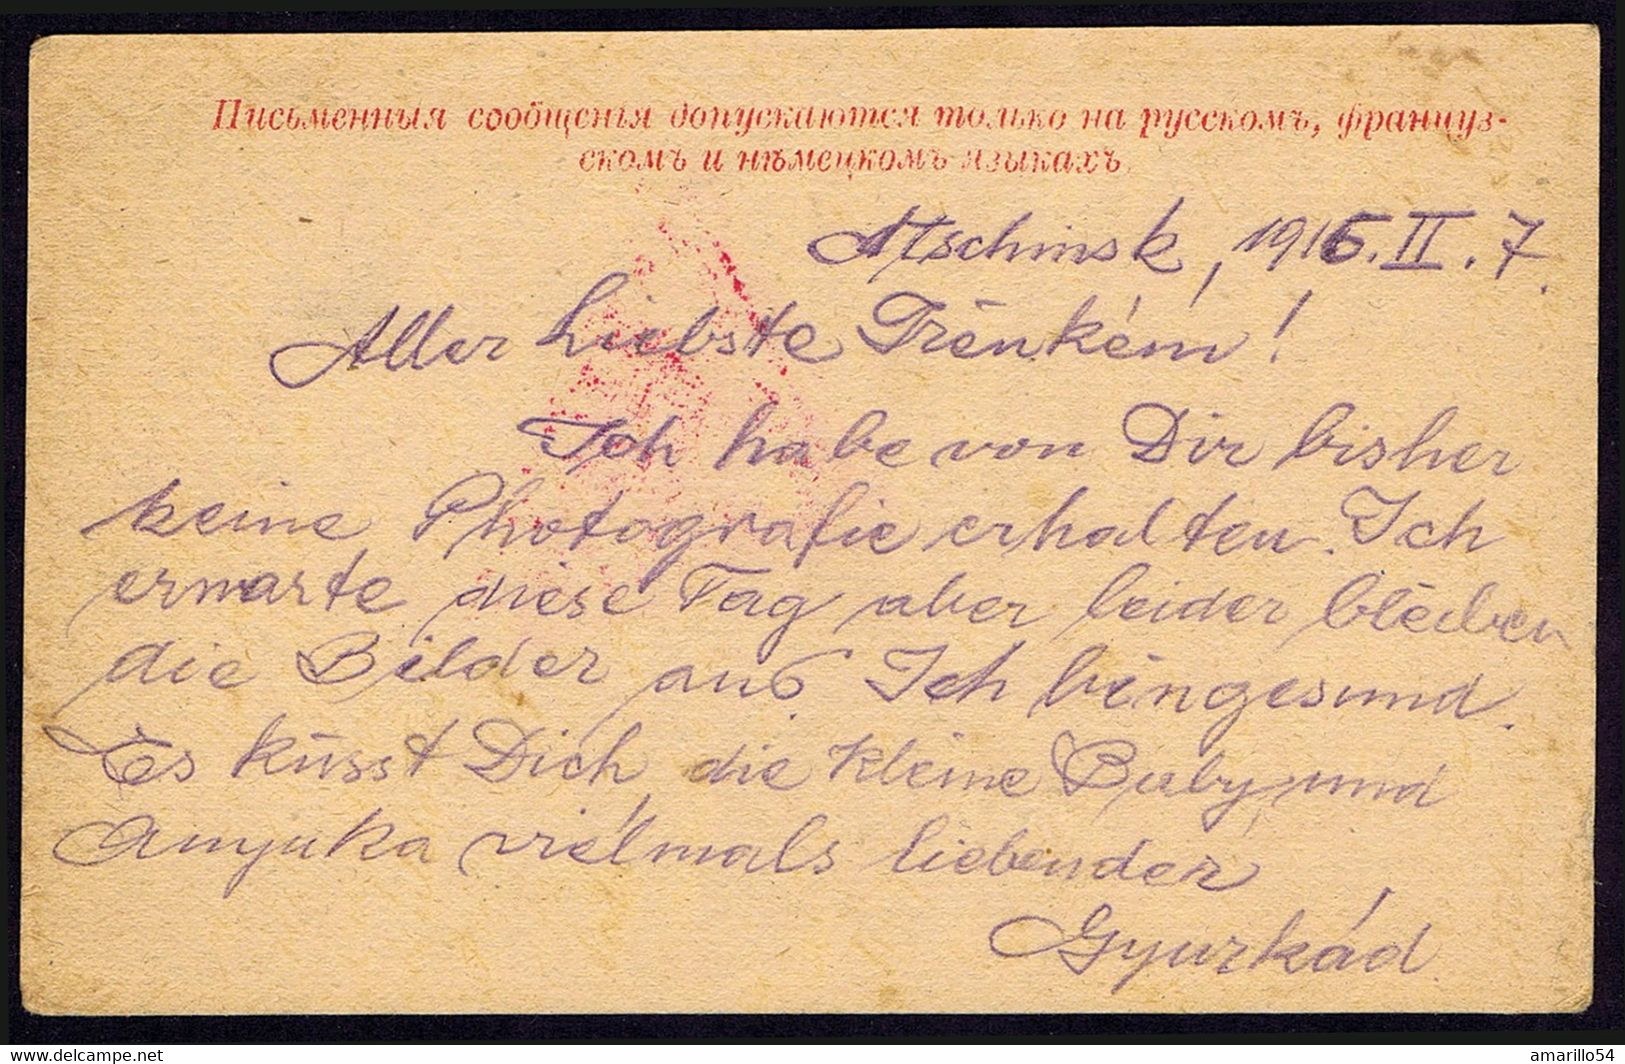 Письменныя сообщенія допускаются только на русскомъ, француз-
скомъ и нѣмецкомъ языкахъ.
Atschinsk, 1916.II.7.
Aller Liebste Irénkém!
Ich habe von Dir bisher
keine Photografie erhalten. Ich
erwarte diese Tag aber leider bleiben
die Bilder aus. Ich bin gesund.
Es küsst Dich, die kleine Buby, und
Anyuka vielmals liebender
Gyurkád
www.delcampe.net
amarillo54